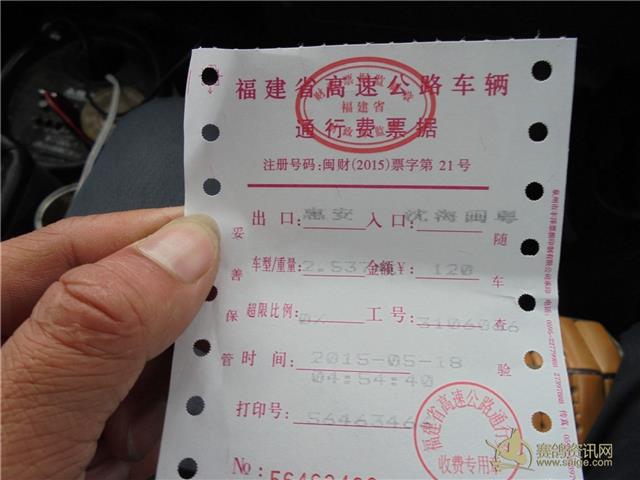 福建省高速公路车辆
财政票据监制
福建省
财政部监制
通行费票据
注册号码:闽财(2015)票字第 21 号
出口:惠安 入口:沈海闽粤
车型/重量:2.537 金额¥:120
超限比例:0% 工号:3106066
时间:2015-05-18
04:54:40
打印号:5646346
No:56463460
妥善保管
随车查验
福建省高速公路通行
收费专用章
赛鸽资讯网
www.saige.com